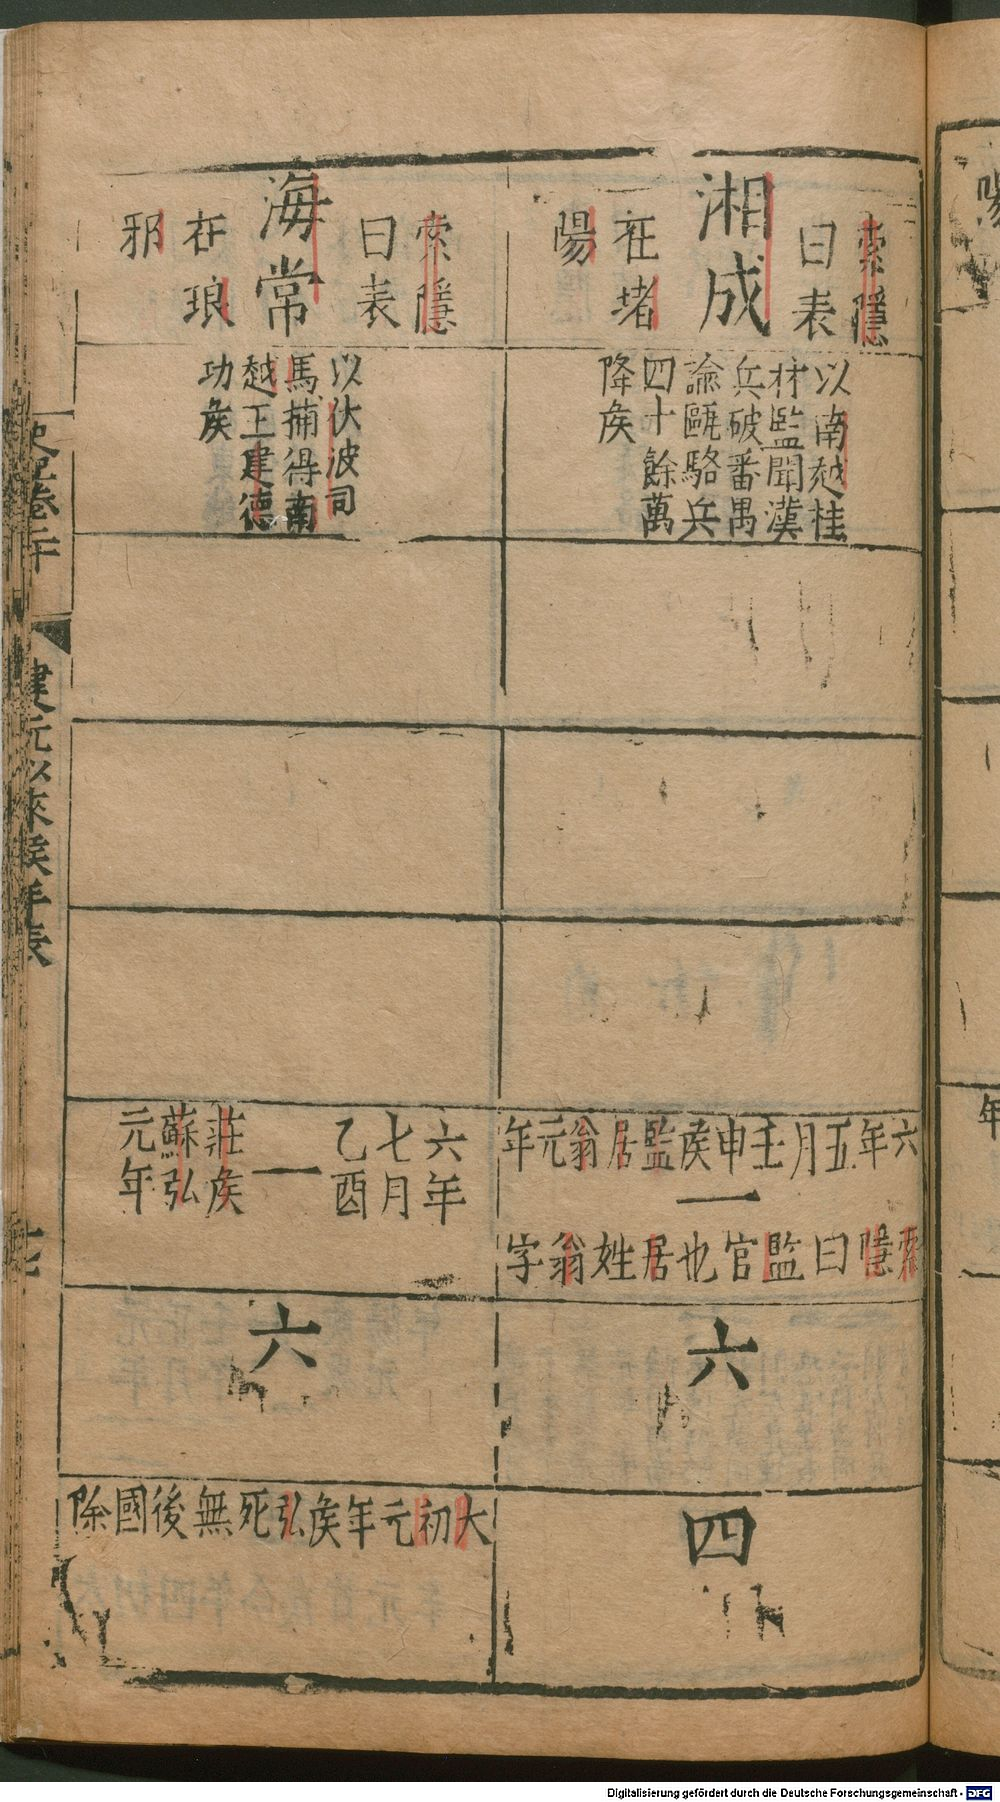 湘成
索隱
曰表
在堵
陽
以南越桂
林監聞漢
兵破番禺
諭甌駱兵
四十餘萬
降矦
六年五月壬申矦監居翁元年
一
索隱曰監官也居姓翁字
六
四
海常
索隱
曰表
在琅
邪
以伏波司
馬捕得南
越王建德
功矦
六年
七月
乙酉
一
莊矦
蘇弘
元年
六
太初元年矦弘死無後國除
史記卷二十
建元以來矦年表
年
Digitalisierung gefördert durch die Deutsche Forschungsgemeinschaft - DFG